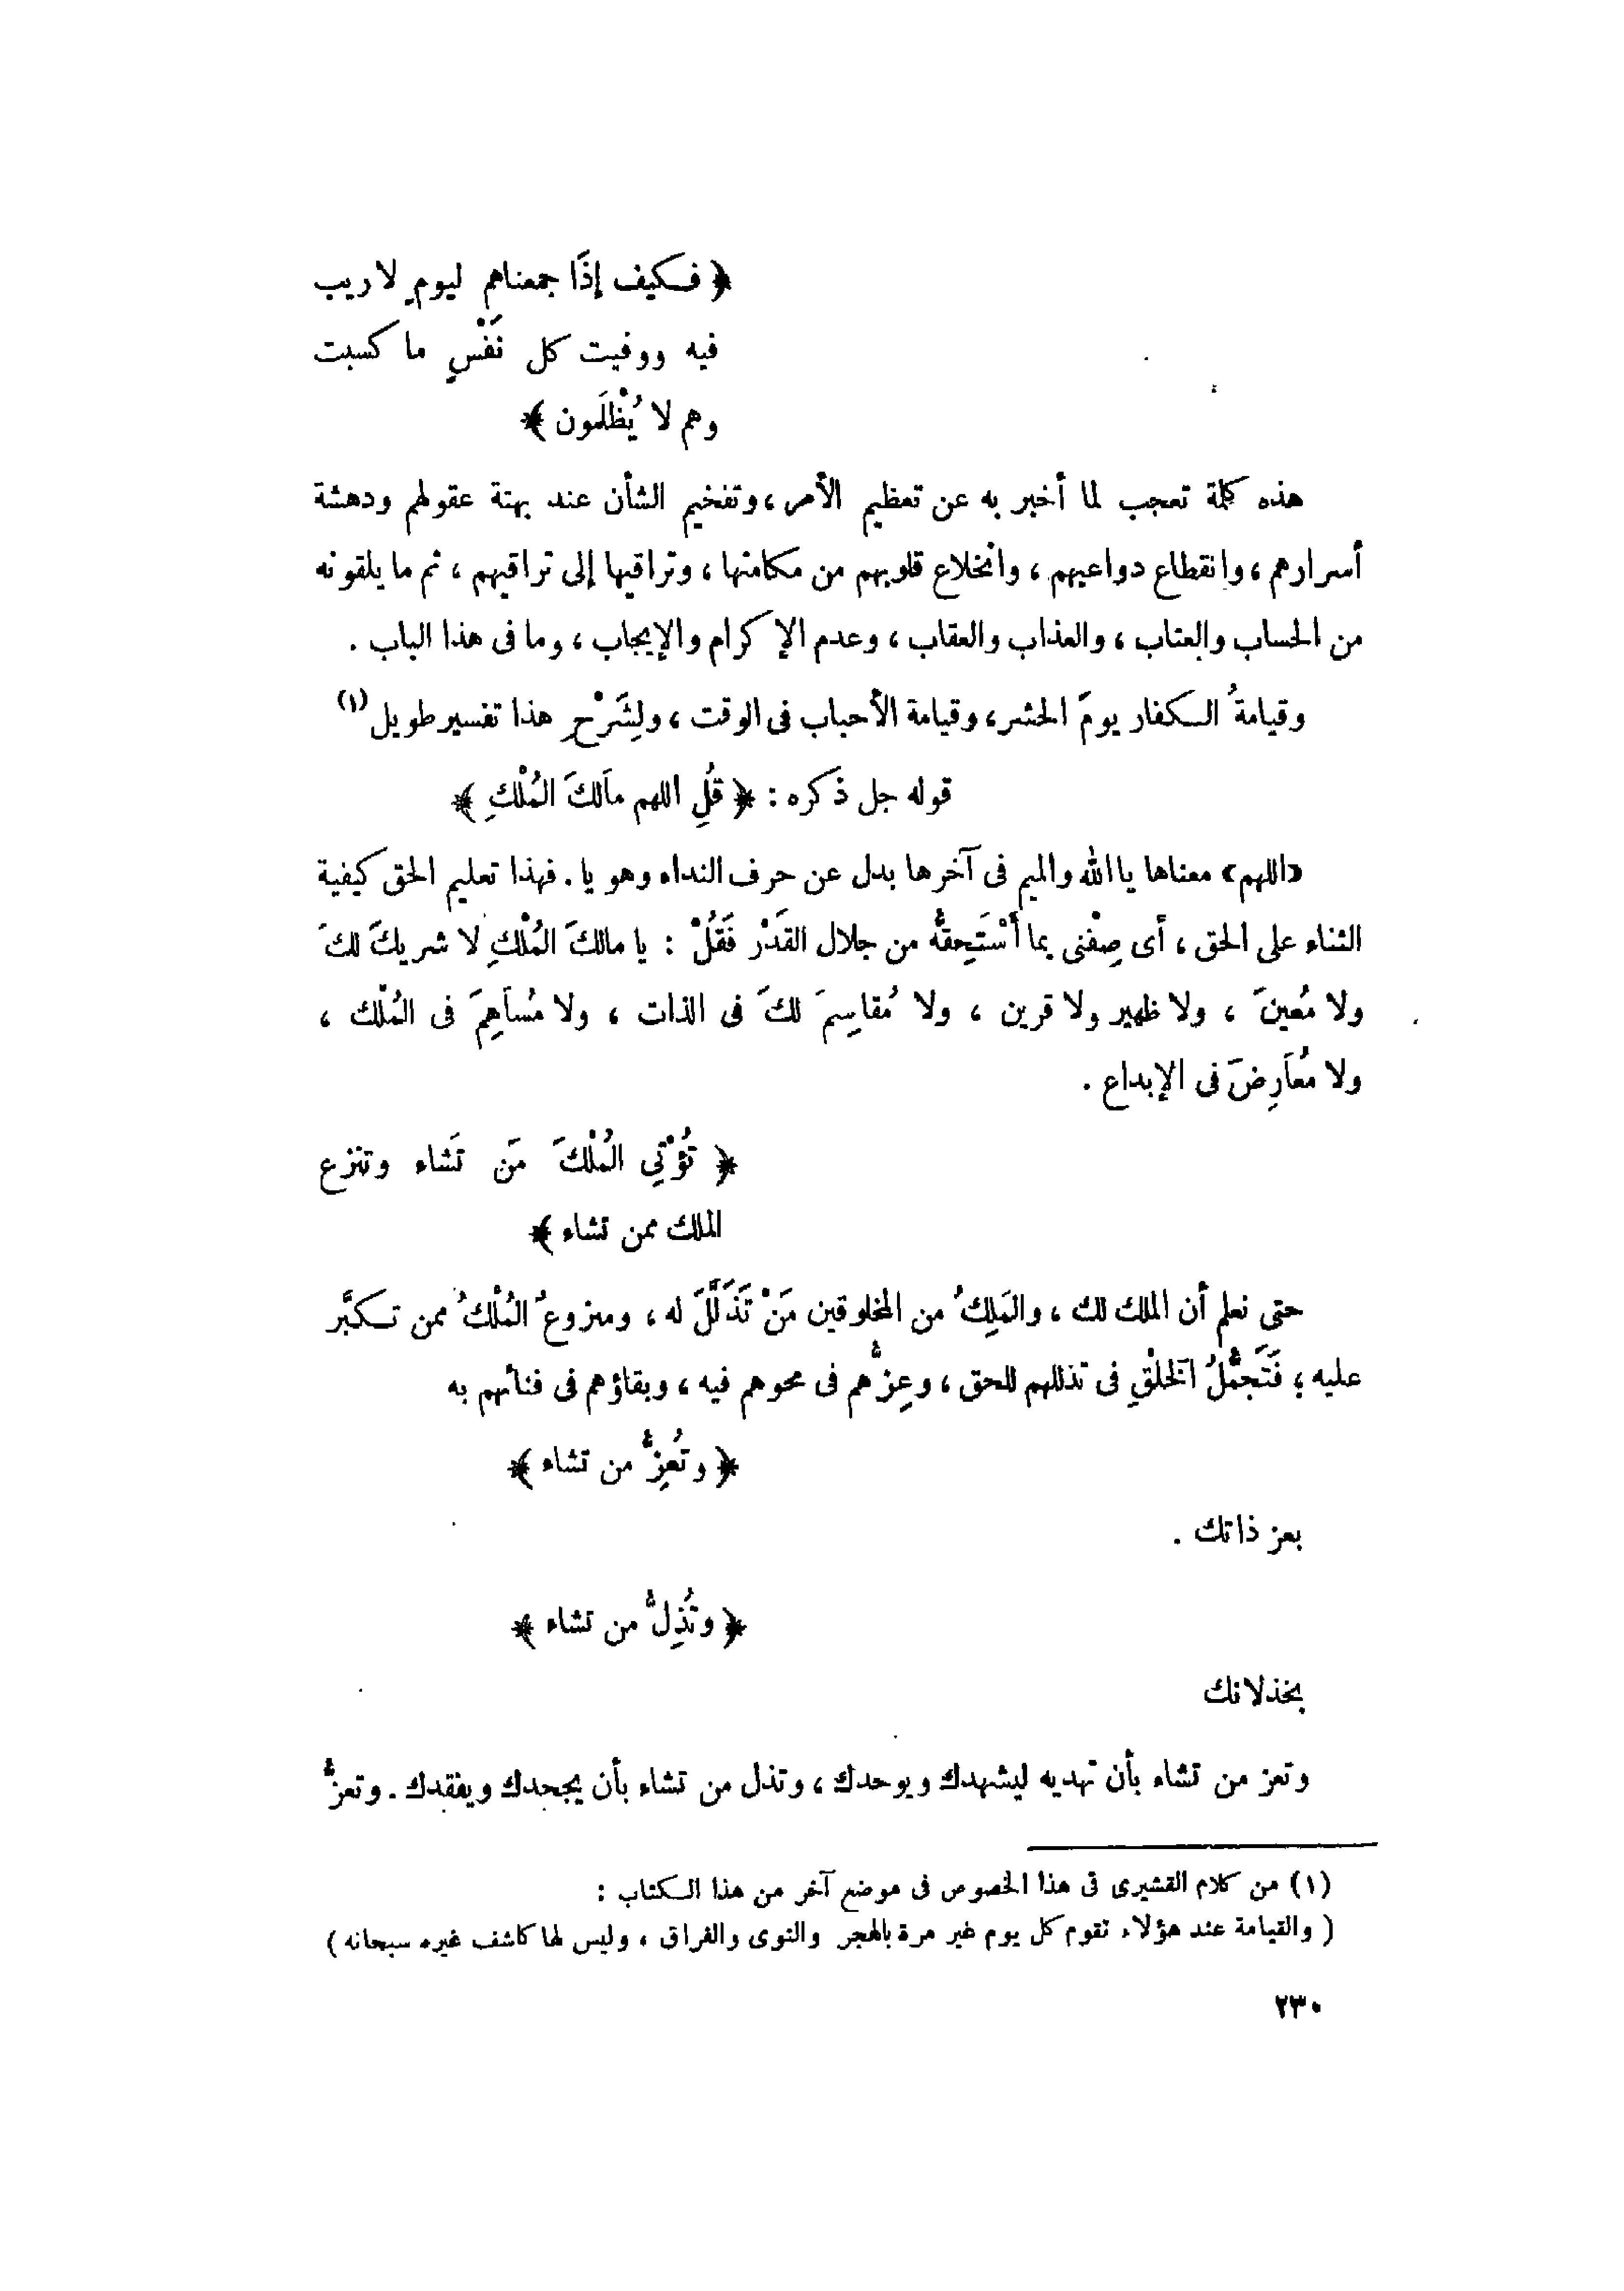 ﴿ فكيف إذَا جمعناهم ليومٍ لاريب
فيه ووفيت كل نَفْسٍ ما كسبت
وهم لا يُظْلَمون ﴾
هذه كلمة تعجب لما أخبر به عن تعظيم الأمر ، وتفخيم الشأن عند بهتة عقولهم ودهشة
أسرارهم ، وانقطاع دواعيهم ، وانخلاع قلوبهم من مكامنها ، وتراقيها إلى تراقيهم ، ثم ما يلقونه
من الحساب والعتاب ، والعذاب والعقاب ، وعدم الإكرام والإيجاب ، وما فى هذا الباب .
وقيامةُ الكفار يومَ الحشر ، وقيامة الأحباب فى الوقت ، ولِشَرْحِ هذا تفسير طويل (١)
قوله جل ذكره : ﴿ قُلِ اللهم مالكَ المُلْكِ ﴾
«اللهم» معناها يا الله والميم فى آخرها بدل عن حرف النداء وهو يا . فهذا تعليم الحق كيفية
الثناء على الحق ، أى صِفْنى بما أَسْتَحِقُّه من جلال القَدْر فَقُلْ : يا مالكَ المُلْكِ لا شريكَ لكَ
ولا مُعينَ ، ولا ظهير ولا قرين ، ولا مُقاسِمَ لكَ فى الذات ، ولا مُسَاهِمَ فى المُلْك ،
ولا مُعَارِضَ فى الإبداع .
﴿ تُؤْتِى المُلْكَ مَن تَشاء وتنزع
الملك ممن تشاء ﴾
حتى نعلم أن الملك لك ، والمَلِكُ من المخلوقين مَنْ تَذَلَّلَ له ، ومنزوعٌ المُلْكُ ممن تكبَّر
عليه ؛ فَتَجَمُّلُ الخَلْقِ فى تذللهم للحق ، وعِزُّهم فى محوهم فيه ، وبقاؤهم فى فنائهم به
﴿ وتُعِزُّ من تشاء ﴾
بعز ذاتك .
﴿ وتُذِلُّ من تشاء ﴾
بخذلانك
وتعز من تشاء بأن تهديه ليشهدك ويوحدك ، وتذل من تشاء بأن يجحدك ويفقدك . وتعزُّ
(١) من كلام القشيرى فى هذا الخصوص فى موضع آخر من هذا الكتاب :
( والقيامة عند هؤلاء تقوم كل يوم غير مرة بالهجر والنوى والفراق ، وليس لها كاشف غيره سبحانه )
٢٣٠